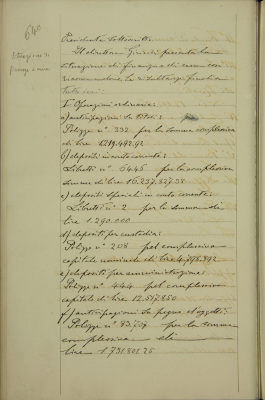 640
Situazione di
finanza a mese
Presidente
Il direttore presenta la
situazione di finanza di
I Operazioni ordinarie:
a) anticipazioni su titoli:
Polizze n° 332 per la somma complessiva
di lire
b) depositi in conto corrente:
Libretti n° 5446 per la complessiva
somma di lire 16.237.827.38
c) depositi speciali in conto corrente:
Libretti n° 2 per la somma di
lire 1.290.000
d) depositi per custodia:
Polizze n° 208 pel complessivo
capitale nominale di lire 4.798.892
e) depositi per amministrazione:
Polizze n° 444 pel complessivo
capitale di lire 12.517.850
f) anticipazioni su pegno d'oggetti:
Polizze n° per la somma
complessiva di
lire